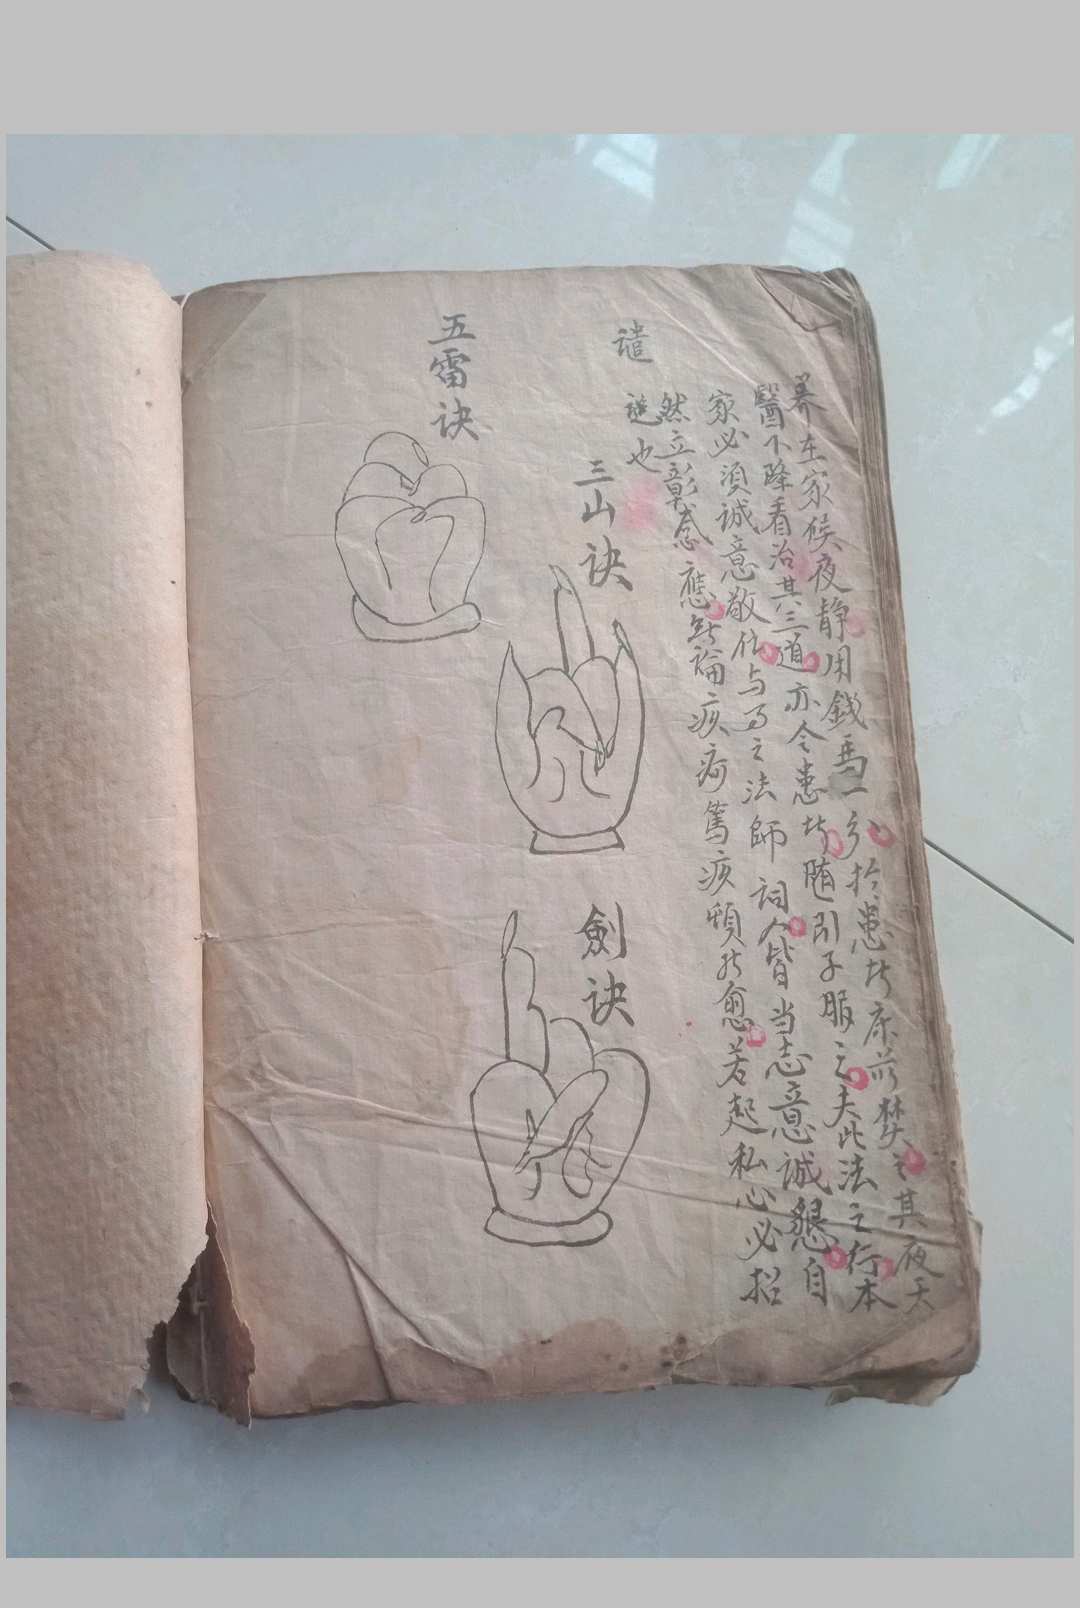 暮在家候夜静用錢馬一分於患者床前焚之其夜天
醫下降看治其三道亦令患者随引子服之夫此法之行本
家必須誠意敬与之法師詞人皆当志意誠懇自
然立彰感應無論疾病篤疾頓愈若起私心必招
譴也
譴
三山诀
劍诀
五雷诀